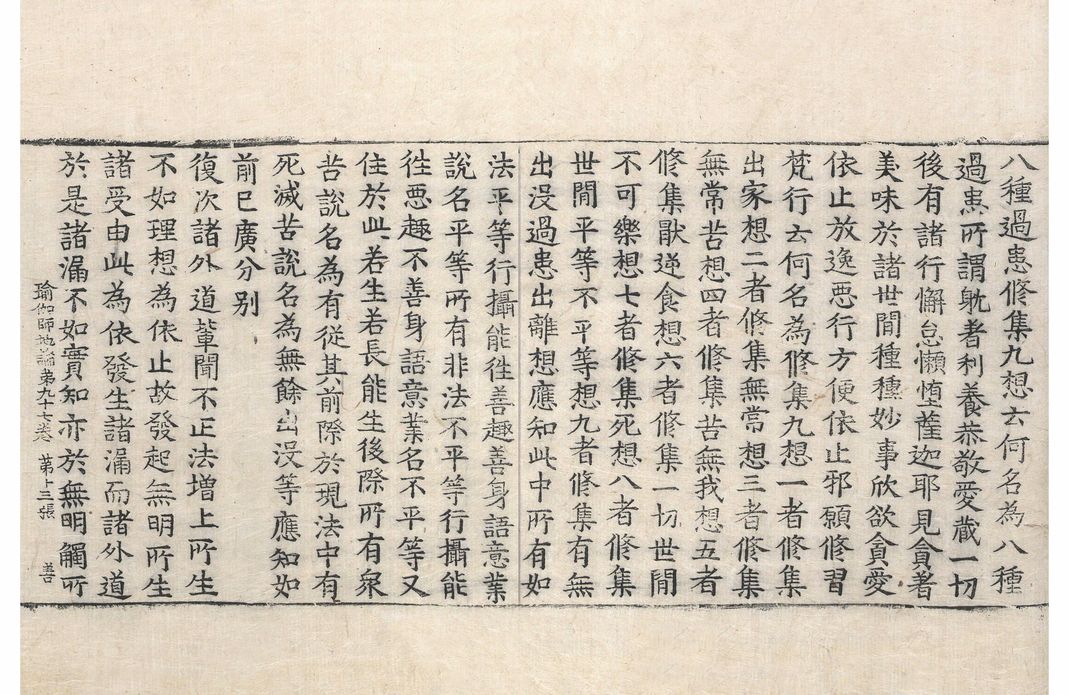 八種過患修集九想云何名為八種
過患所謂躭著利養恭敬愛藏一切
後有諸行懈怠懶惰薩迦耶見貪著
美味於諸世閒種種妙事欣欲貪愛
依止放逸惡行方便依止邪願修習
梵行云何名為修集九想一者修集
出家想二者修集無常想三者修集
無常苦想四者修集苦無我想五者
修集猒逆食想六者修集一切世閒
不可樂想七者修集死想八者修集
世閒平等不平等想九者修集有無
出沒過患出離想應知此中所有如
法平等行攝能徃善趣善身語意業
說名平等所有非法不平等行攝能
徃惡趣不善身語意業名不平等又
住於此若生若長能生後際所有衆
苦說名為有從其前際於現法中有
死滅苦說名為無餘出沒等應知如
前已廣分別
復次諸外道輩聞不正法增上所生
不如理想為依止故發起無明所生
諸受由此為依發生諸漏而諸外道
於是諸漏不如實知亦於無明觸所
瑜伽師地論弟九十七卷 苐十三張 善